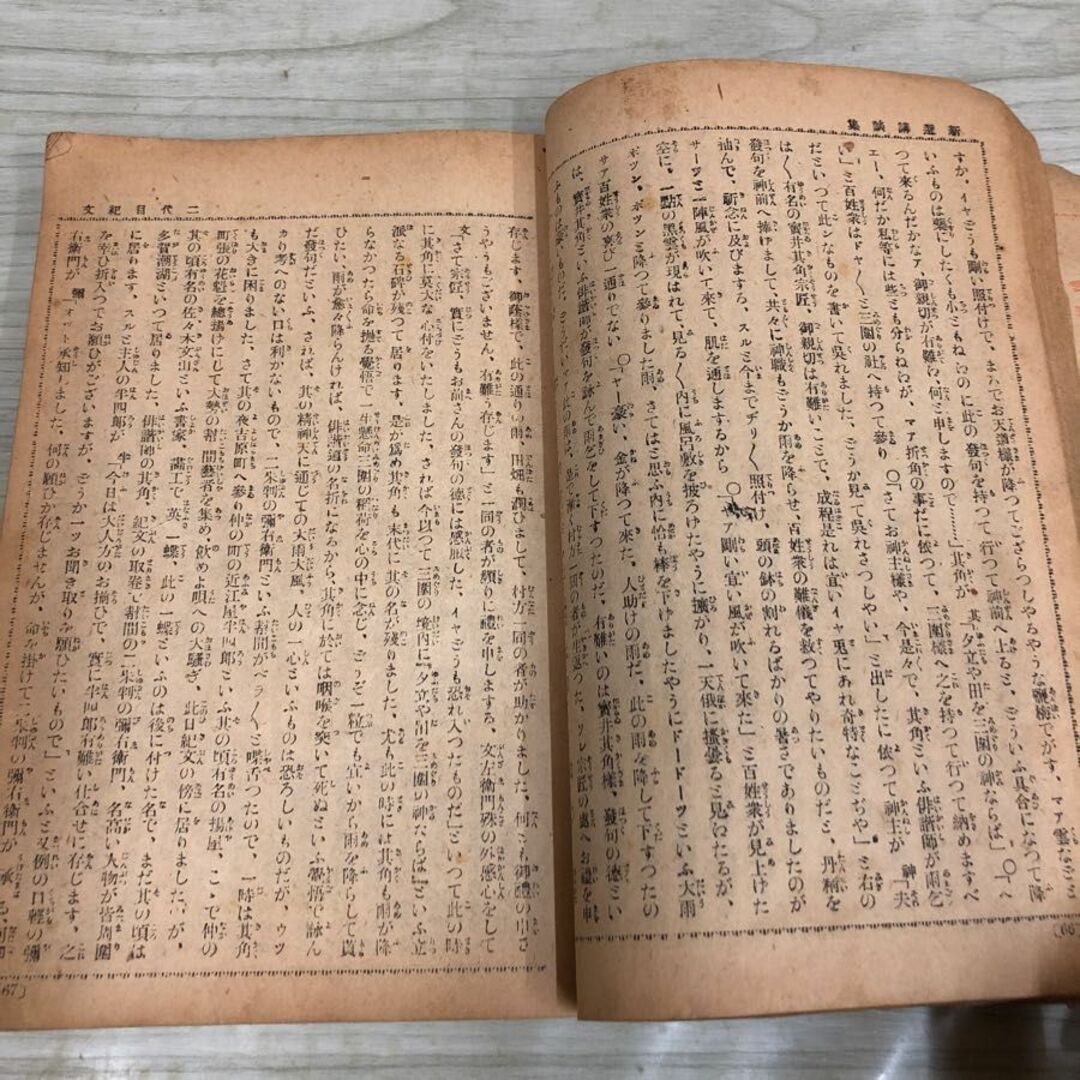 新選講談集
すか、イヤどうも剛い照付けで、まるでお天道様が降つてござらつしやるやうな鹽梅でがす、マア雲なぞと
いふものは藥にしたくも小ともねねの に此の發句を持つて行つて神前へ上ると、どういふ具合になつて降
つて来るんだかなア、御親切が有難い、何と申しますので……』其角が 其『夕立や田を三圍の神ならば』 〇『へ
エー、何だか私等には些とも分らねねが、マア折角の事だに依つて、三圍様へ之を持つて行つて納めますべ
い』と百姓衆はドヤ〳〵三圍の社へ持つて參り 〇『さてお神主樣や、今是々で、其角といふ俳諧師が雨乞
だといつて此ンなものを書いて吳れました、どうか見て吳れさつしやい』と出したに依つて神主が 神『夫
は〳〵有名の寶井其角宗匠、御親切は有難いことで、成程是れは宜いイヤ兎にあれ奇特なことぢや』と右の
發句を神前へ捧げまして、共々に神職もどうか雨を降らせ、百姓衆の難儀を救つてやりたいものだと、丹精を
抽んで、祈念に及びまする、スルと今までヂリ〳〵照付け、頭の鉢の割れるばかりの暑さでありましたのが
サーツと一陣風が吹いて来て、肌を通しまするから 〇『ヤア剛い宜い風が吹いて来た』と百姓衆が見上げた
空に、一點の黑雲が現はれて、見る〳〵内に風呂敷を披ろげたやうに擴がり、一天俄に搔曇ると見ねたるが、
ポツン、ポツンと降つて參りました雨、さてはと思ふ内に恰も棒を下げましたやうにドードーツといふ大雨
サア百姓衆の喜び一通りでない 〇『ヤー豪い、金が降つて来た、人助けの雨だ、此の雨を降して下すつたの
は、寶井其角といふ俳諧師が發句を詠んで雨乞をして下すつたのだ、有難いのは寶井其角樣、發句の德とい
(66)
二代目紀文
存じます、御蔭樣で、此の通りの雨、田畑も潤ひまして、村方一同の者が助かりました、何とも御禮の申さ
うやうもございません、有難く存じます』と一同の者が頻りに禮を申しまする、文左衞門殊の外感心をして
文『さて宗匠、實にどうもお前さんの發句の德には感服した、イヤどうも恐れ入つたものだ』といつて此の時
に其角に莫大な心付をいたしました、されば今以つて三圍の境内に『夕立や田を三圍の神ならば』といふ立
派なる石碑が殘つて居ります、是が爲め其角も末代に其の名が殘りました、尤も此の時には其角も雨が降
らなかつたら命を抛る覺悟で一生懸命三圍の稻荷を心の中に念じ、どうぞ一粒でも宜いから雨を降らして貰
ひたい、雨が愈々降らんければ、俳諧道の名折になるから、其角に於ては咽喉を突いて死ぬといふ覺悟で詠ん
だ發句だといふ、されば、其の精神天に通じての大雨大風、人の一心といふものは恐ろしいものだが、ウツ
カリ考へのない口は利かないもので、二朱判の彌右衞門といふ幇間がベラ〳〵と喋舌つたので、一時は其角
も大きに困りました、さて其の夜吉原町へ參り仲の町の近江屋半四郎といふ其の頃有名の揚屋、こゝで仲の
町張の花魁を總揚げにして大勢の幇間藝者を集め、飲めよ唄への大騷ぎ、此日紀文の傍に居りましたのが、
其の頃有名の佐々木文山といふ書家、畵工で英一蝶、此の一蝶といふのは後に付けた名で、まだ其の頃は
多賀潮湖といつて居りました、俳諧師の其角、紀文の取卷で幇間の二朱判の彌右衞門、名高い人物が皆周圍
に居ります、スルと主人の半四郎が 半『今日は大人方のお揃ひで、實に半四郎有難い仕合せに存じます、之
を幸ひ折入つてお願ひがございますが、どうか一ッお聞き取りを願ひたいもので』といふと例の口輕の彌
右衞門が 彌『オット承知しました、何の願ひか存じませんが、命を掛けて二朱判の彌右衞門が承
67)